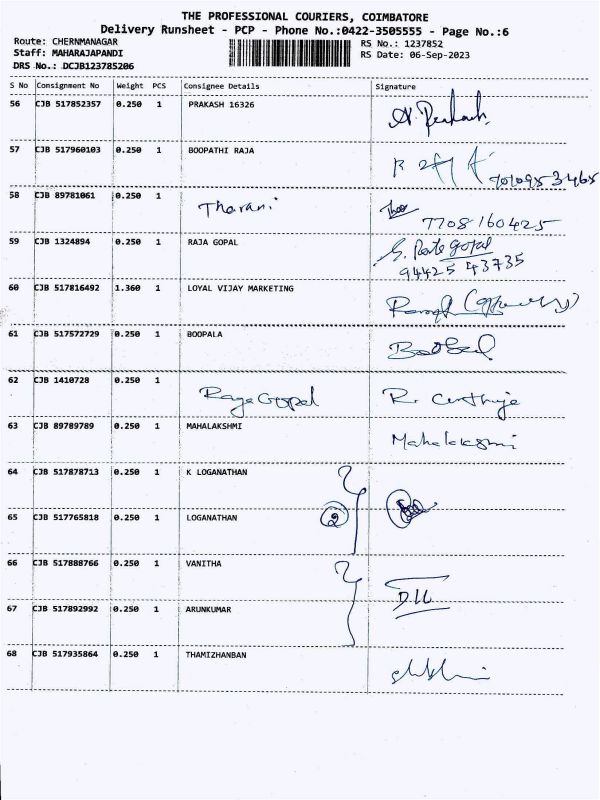 THE PROFESSIONAL COURIERS, COIMBATORE
Delivery Runsheet - PCP - Phone No.:0422-3505555 - Page No.:6
Route: CHERNMANAGAR RS No.: 1237852
Staff: MAHARAJAPANDI RS Date: 06-Sep-2023
DRS No.: DCJB123785206
S No Consignment No Weight PCS Consignee Details Signature
56 CJB 517852357 0.250 1 PRAKASH 16326
57 CJB 517960103 0.250 1 BOOPATHI RAJA
58 CJB 89781061 0.250 1 Tharani
7708160425
59 CJB 1324894 0.250 1 RAJA GOPAL
94425 43735
60 CJB 517816492 1.360 1 LOYAL VIJAY MARKETING
61 CJB 517572729 0.250 1 BOOPALA
62 CJB 1410728 0.250 1
Raja Gopal
63 CJB 89789789 0.250 1 MAHALAKSHMI
Mahalakshmi
64 CJB 517878713 0.250 1 K LOGANATHAN
65 CJB 517765818 0.250 1 LOGANATHAN 2
66 CJB 517888766 0.250 1 VANITHA
67 CJB 517892992 0.250 1 ARUNKUMAR
68 CJB 517935864 0.250 1 THAMIZHANBAN